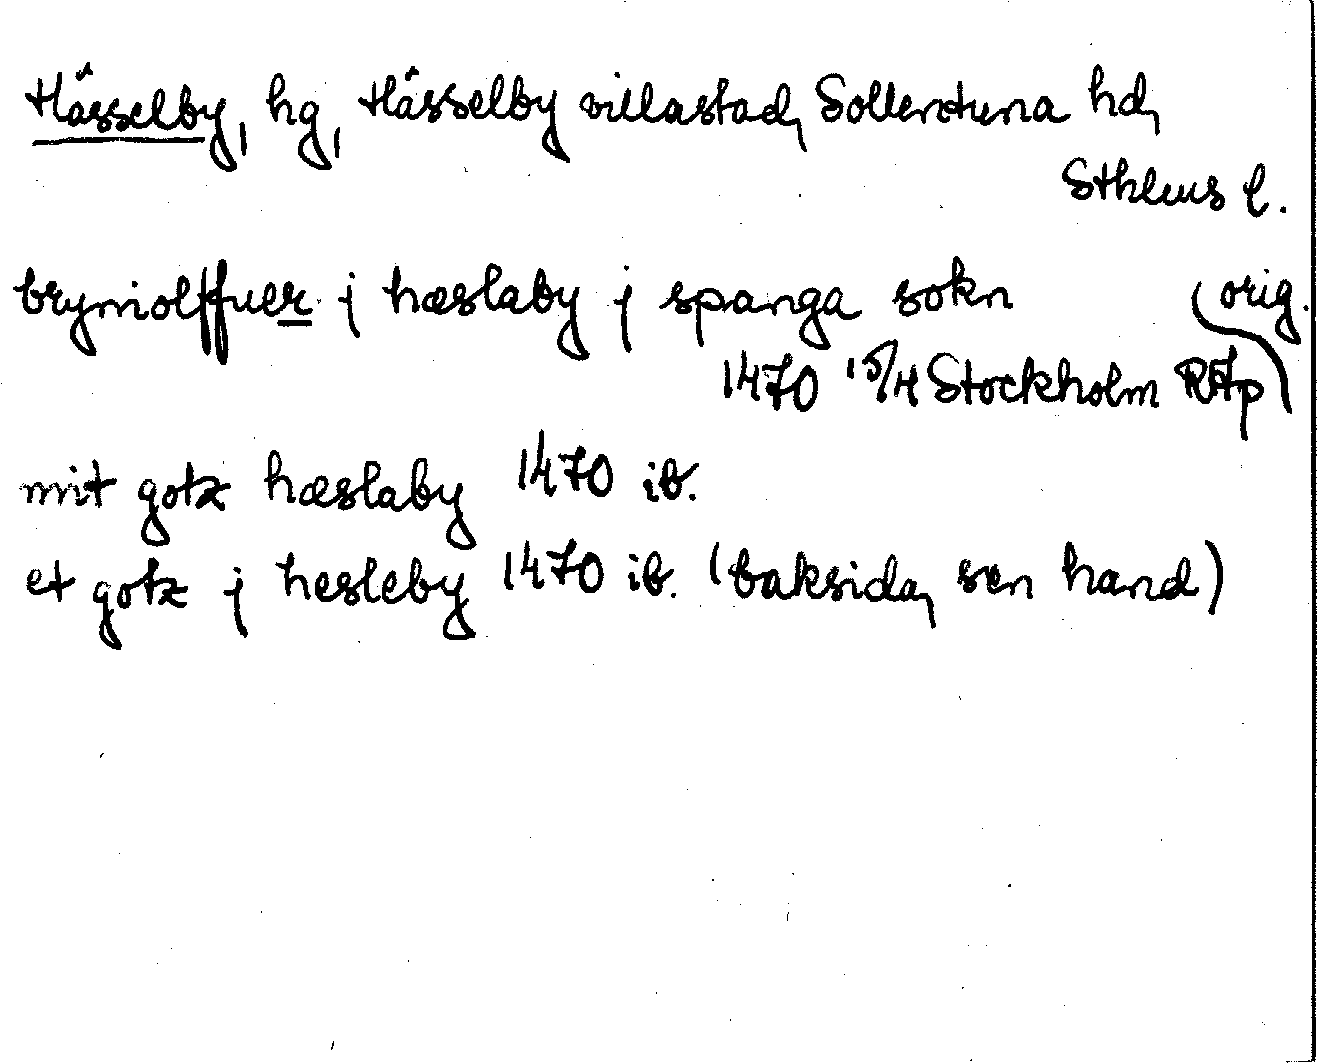 Hässelby, hg, Hässelby villastad, Sollentuna hd,
Sthlms l.
brymolffuer j hæslaby j spanga sokn (orig.
1470 15/4 Stockholm RAp)
mit gotz hæslaby 1470 ib.
et gotz j hesleby 1470 ib. (baksida, sen hand)